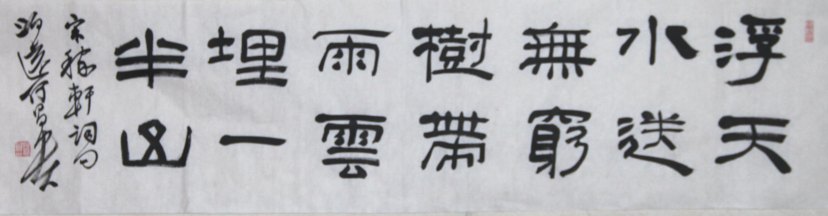 浮天
水送
無窮
樹帶
雨雲
埋一
半山
宋稼軒詞句